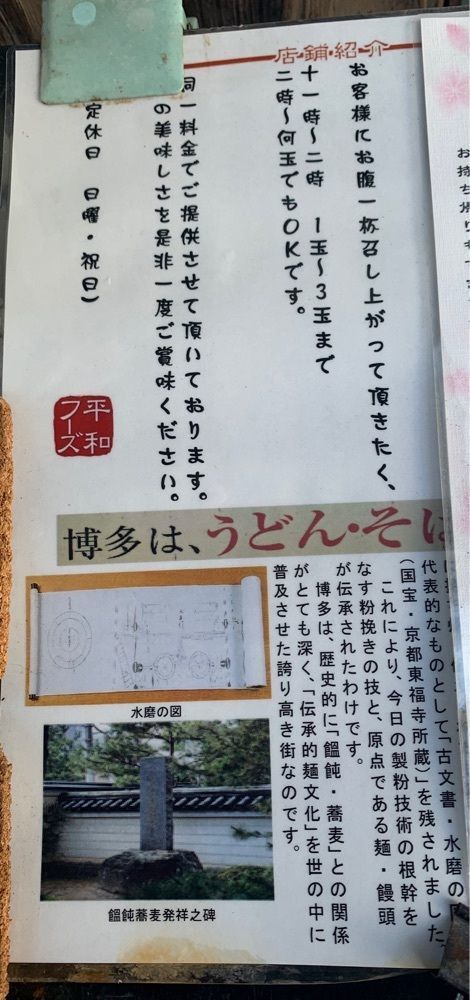 店舗紹介
お客様にお腹一杯召し上がって頂きたく、
十一時～二時　1玉～3玉まで
二時～何玉でもOKです。
同一料金でご提供させて頂いております。
の美味しさを是非一度ご賞味ください。
定休日　日曜・祝日）
平和
フーズ
お持ち帰り
博多は、うどん・そば
代表的なものとして「古文書・水磨の
（国宝・京都東福寺所蔵）」を残されました
これにより、今日の製粉技術の根幹を
なす粉挽きの技と、原点である麺・饅頭
が伝承されたわけです。
博多は、歴史的に「饂飩・蕎麦」との関係
がとても深く、「伝承的麺文化」を世の中に
普及させた誇り高き街なのです。
水磨の図
饂飩蕎麦発祥之碑